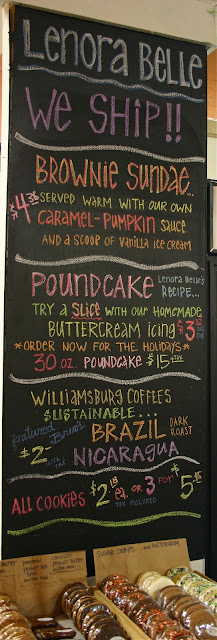 LENORA BELLE
WE SHIP!!
BROWNIE SUNDAE..
$4.36 SERVED WARM WITH OUR OWN
CARAMEL-PUMPKIN SAUCE
AND A SCOOP OF VANILLA ICE CREAM
POUNDCAKE Lenora Belle's
RECIPE...
TRY A SLICE WITH OUR HOMEMADE
BUTTERCREAM ICING $3
*ORDER NOW FOR THE HOLIDAYS*
30 OZ. POUNDCAKE $15
WILLIAMSBURG COFFEES
SUSTAINABLE...
featured Brews
BRAZIL DARK
ROAST
$2-
NICARAGUA
ALL COOKIES $2.18 ea. OR 3 FOR $5
TAX INCLUDED